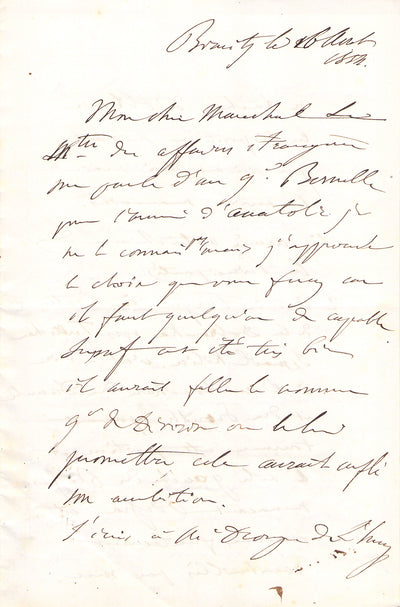 Biarritz le 16 Aout
1854.
Mon cher Marechal Le
M^tre des affaires étrangères
me parle d'un g^l
pour l'armée d'anatolie je
ne le connais pas mais j'approuve
le choix que vous ferez car
il faut quelqu'un de capable
eut été très bien
il aurait fallu le nommer
g^l de Division ou le lui
promettre cela aurait suffi
son ambition.
J'écris à M^r Drouyn de Lhuys